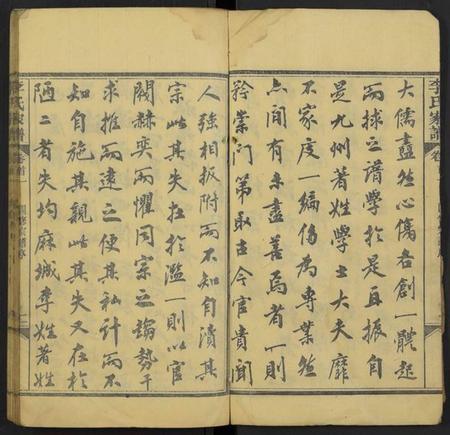 李氏家譜 卷首
大儒盡然心傷各創一體起
而捄之譜學於是且振自
是九州著姓學士大夫靡
不家度一編侈為專業然
間有未盡善焉者一則
矜崇門第取古今官貴聞
人強相扳附而不知自瀆其
宗此其失在於濫一則以官
閥赫奕而懼同宗之勢干
求推而遠之便其私計而不
知自施其親此其失又在於
陋二者失均麻城李姓著姓
李氏家譜 卷首